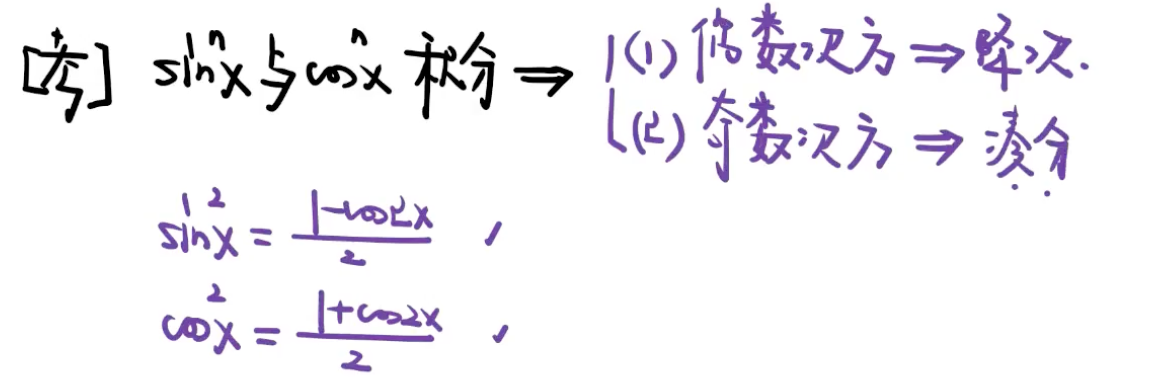 [考] sinⁿx与cosⁿx 积分 ⇒ (1) 偶数次方 ⇒ 降次.
(2) 奇数次方 ⇒ 凑分
sin²x = (1-cos2x)/2 ,
cos²x = (1+cos2x)/2 ,